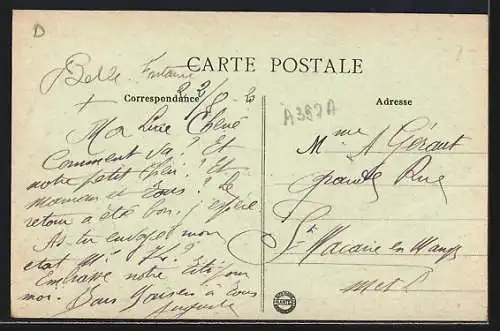 D
CARTE POSTALE
Belle Fontaine
22/8-2
Correspondance
Adresse
A397A
Ma
Comment va? Et
notre petit ? Et
maman et Tous? Le
retour a été bon, j'espère
As-tu envoyé mon
état
Embrasse notre Titi pour
moi. Bons Baisers à tous
Auguste
Mme A Géraut
Grande Rue
St Macaire en Mauges
M et L